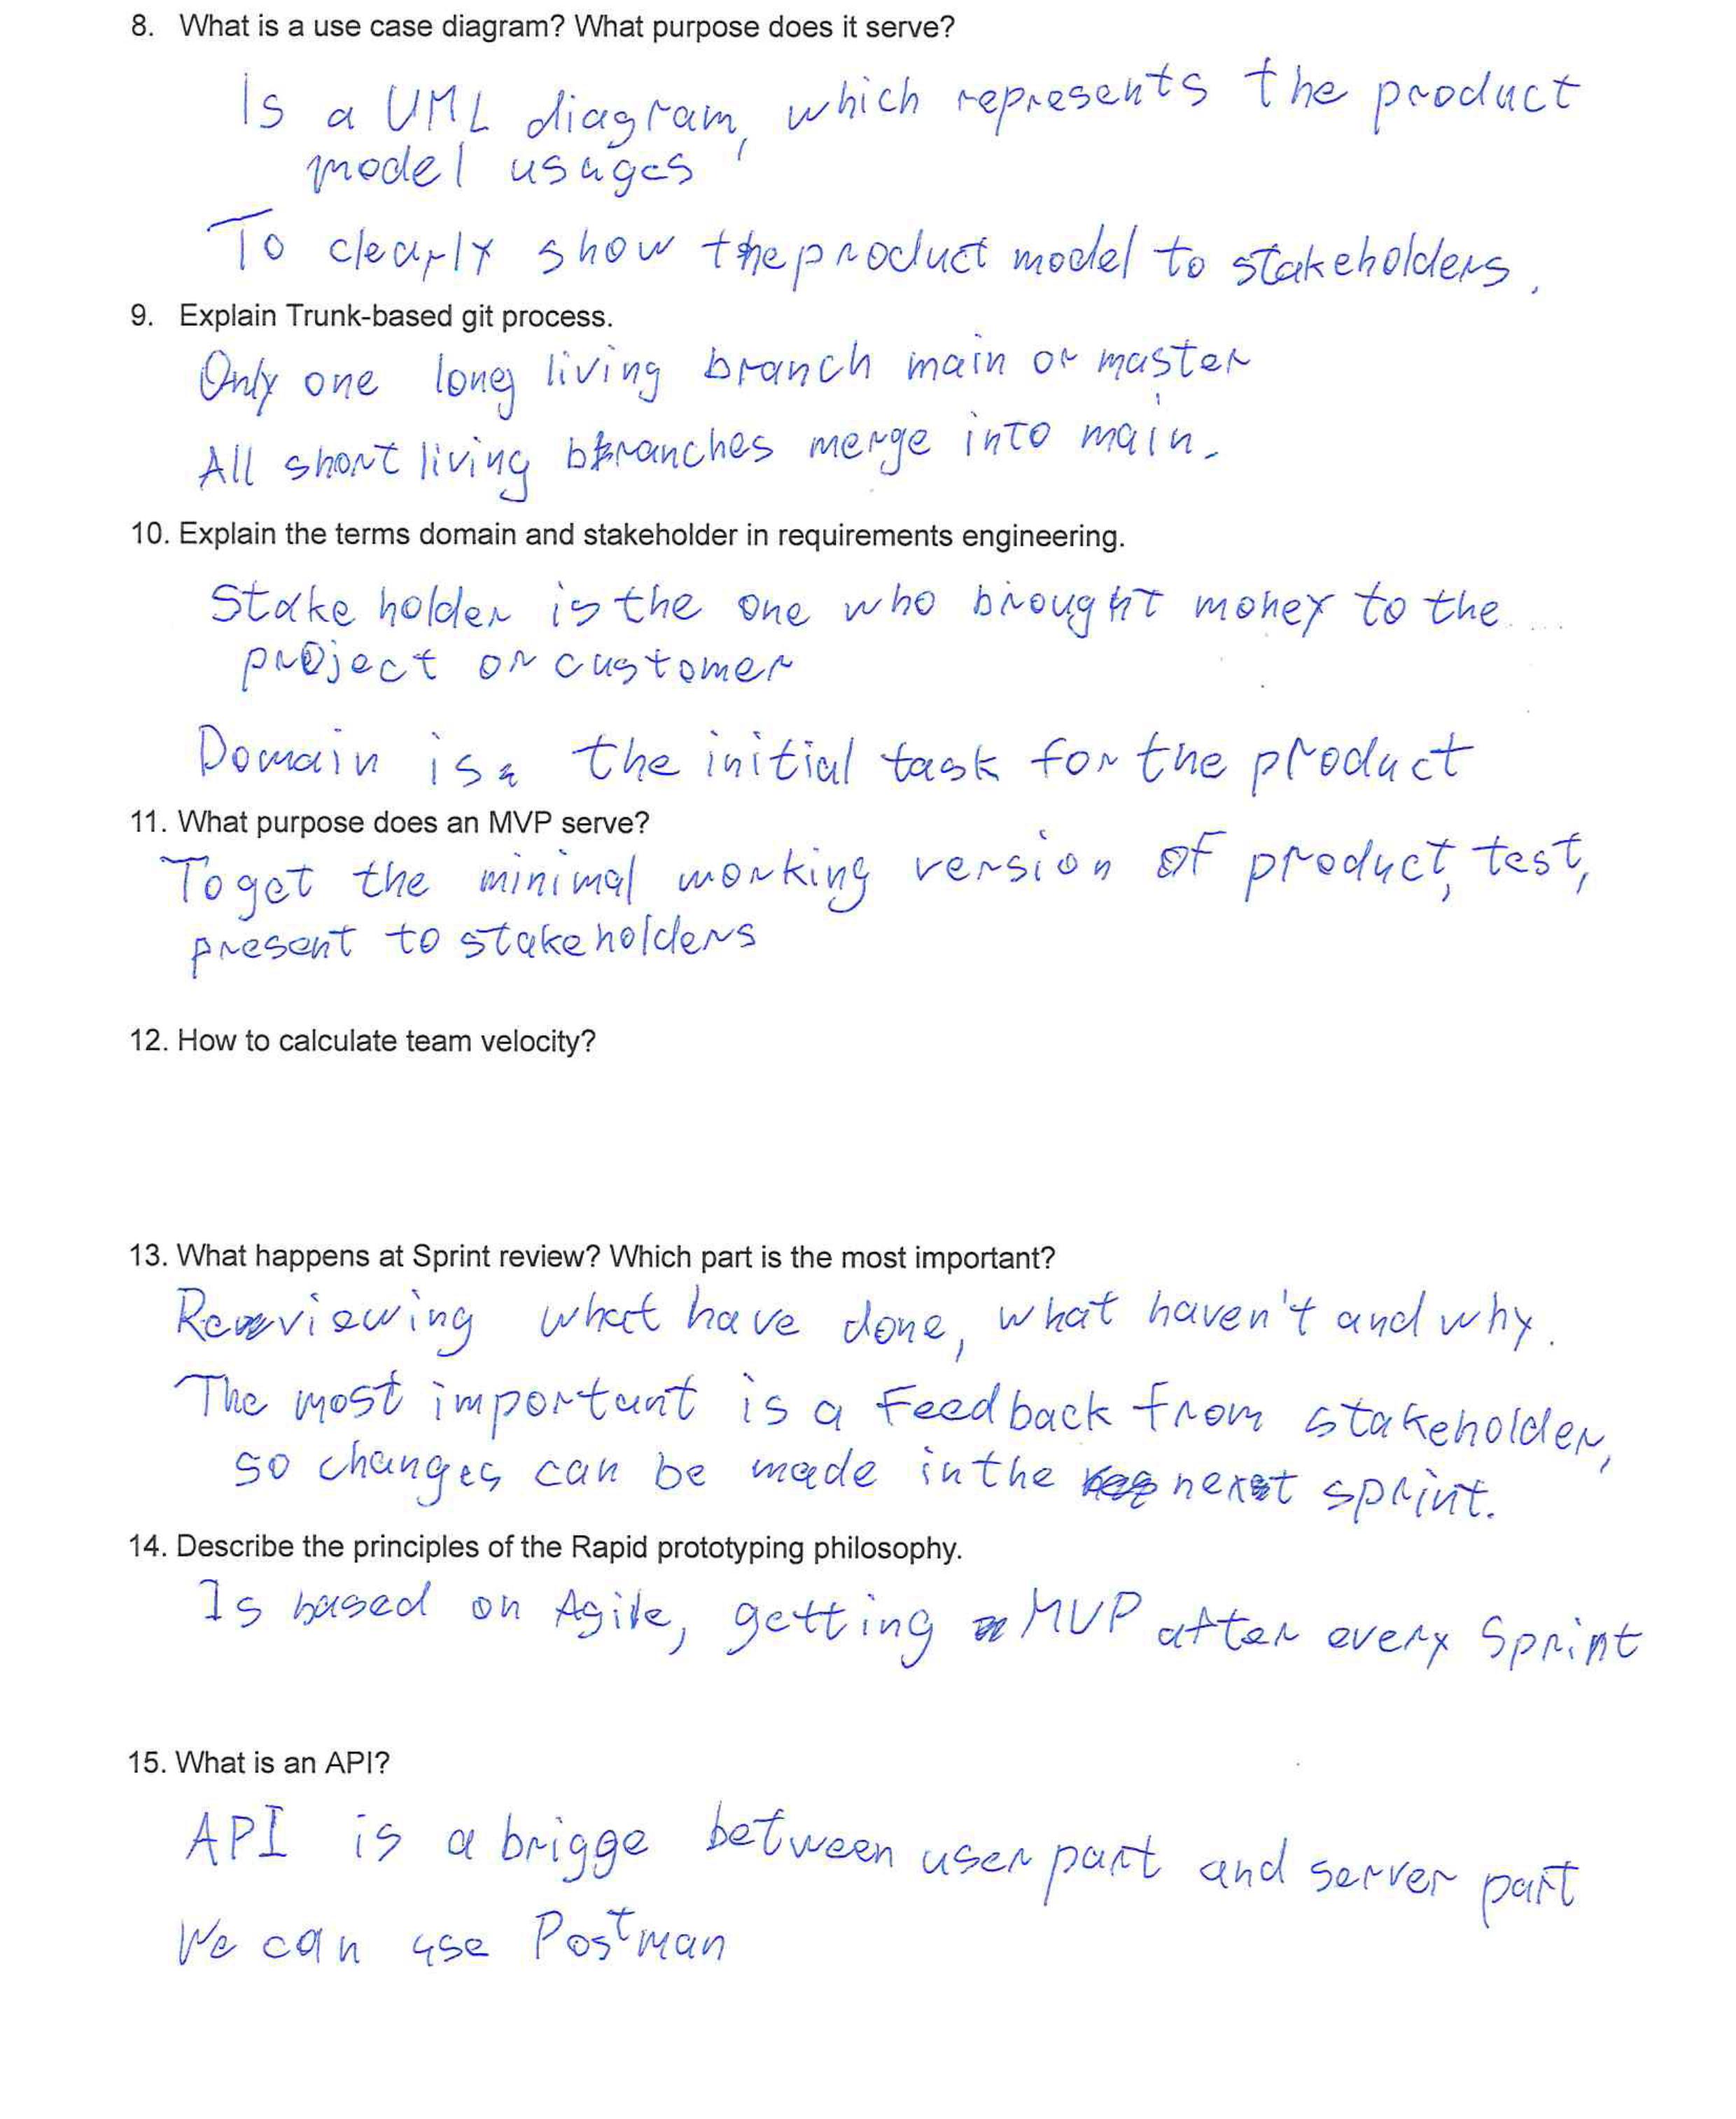 8. What is a use case diagram? What purpose does it serve?
Is a UML diagram, which represents the product
model usages
To clearly show the product model to stakeholders.
9. Explain Trunk-based git process.
Only one long living branch main or master
All short living branches merge into main.
10. Explain the terms domain and stakeholder in requirements engineering.
Stake holder is the one who brought money to the
project or customer
Domain is the initial task for the product
11. What purpose does an MVP serve?
To get the minimal working version of product, test,
present to stakeholders
12. How to calculate team velocity?
13. What happens at Sprint review? Which part is the most important?
Reviewing what have done, what haven't and why.
The most important is a Feedback from stakeholder,
so changes can be made in the next sprint.
14. Describe the principles of the Rapid prototyping philosophy.
Is based on Agile, getting MVP after every Sprint
15. What is an API?
API is a brigge between user part and server part
We can use Postman